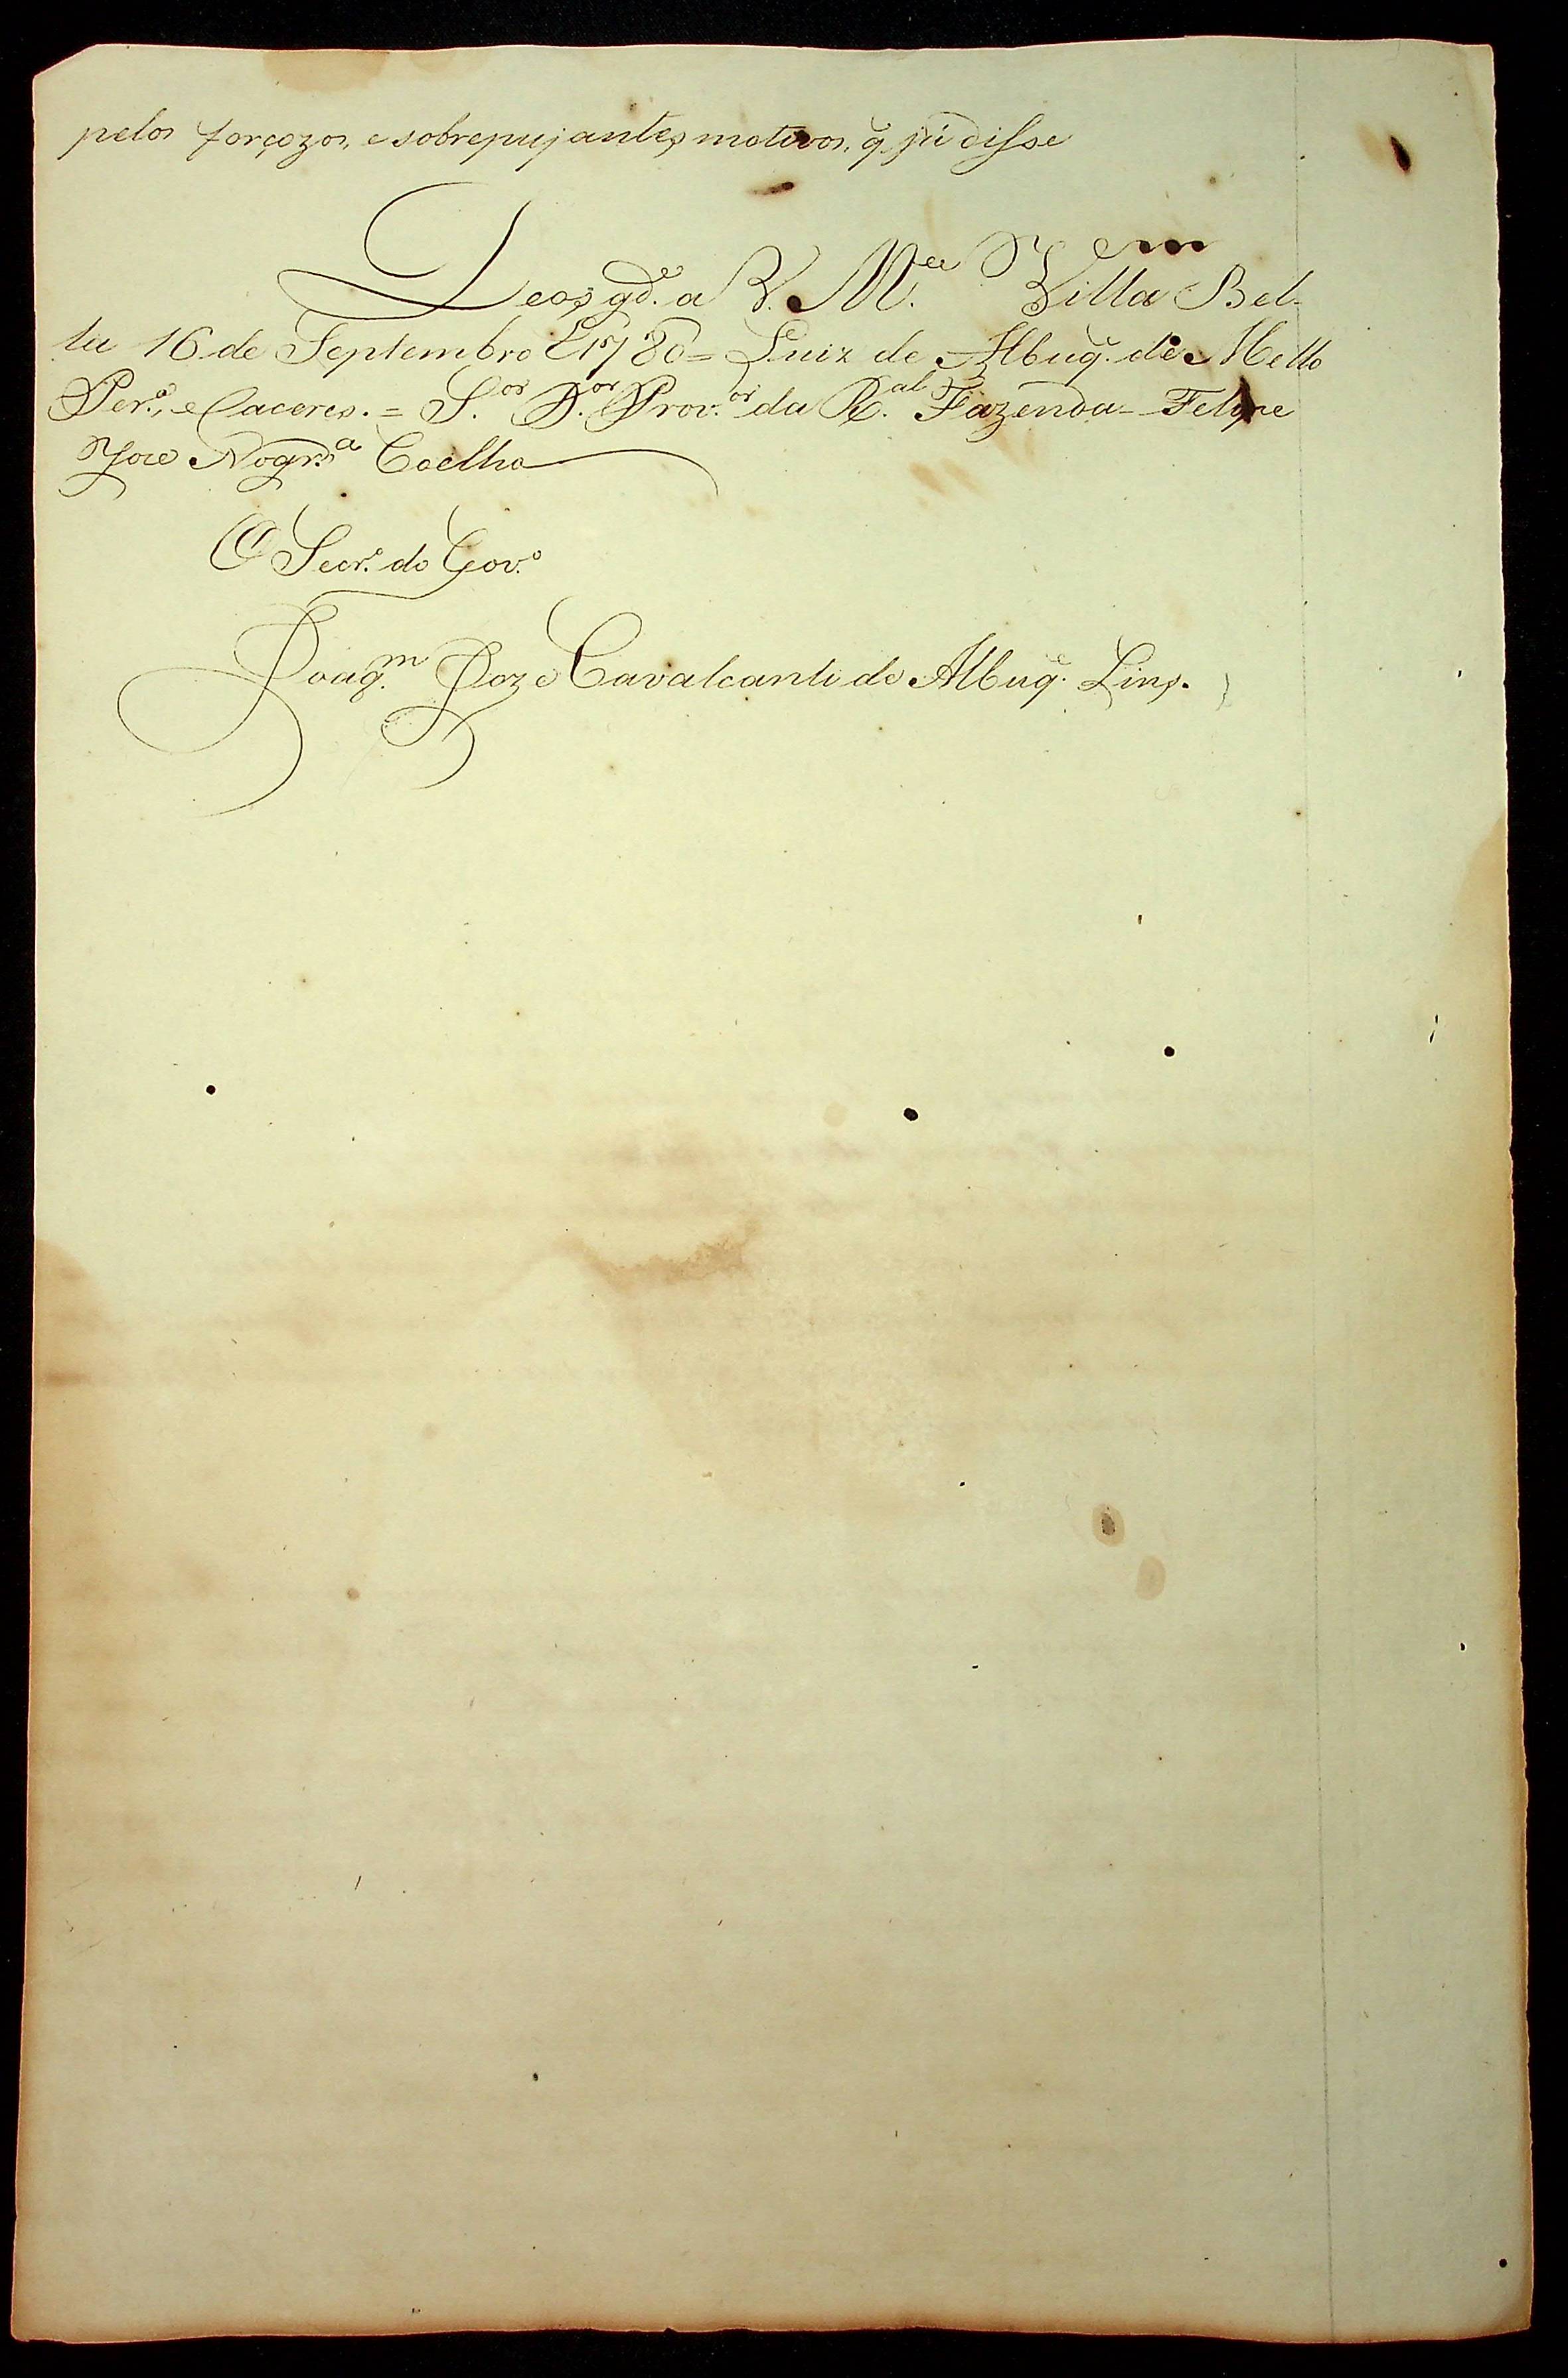 pelos forçozos, e sobrepujantes motivos, q̃ já disse
Deos gd.e a V. M.ce Villa Bel-
la 16 de Septembro de 1780 = Luiz de Albuq.e de Mello
Per.a, e Caceres. = S.or D.or Prov.or da R.al Fazenda Felipe
Joze Nogr.a Coelho
O Secr.o do Gov.o
Joaq.m Joze Cavalcanti de Albuq.e Lins.